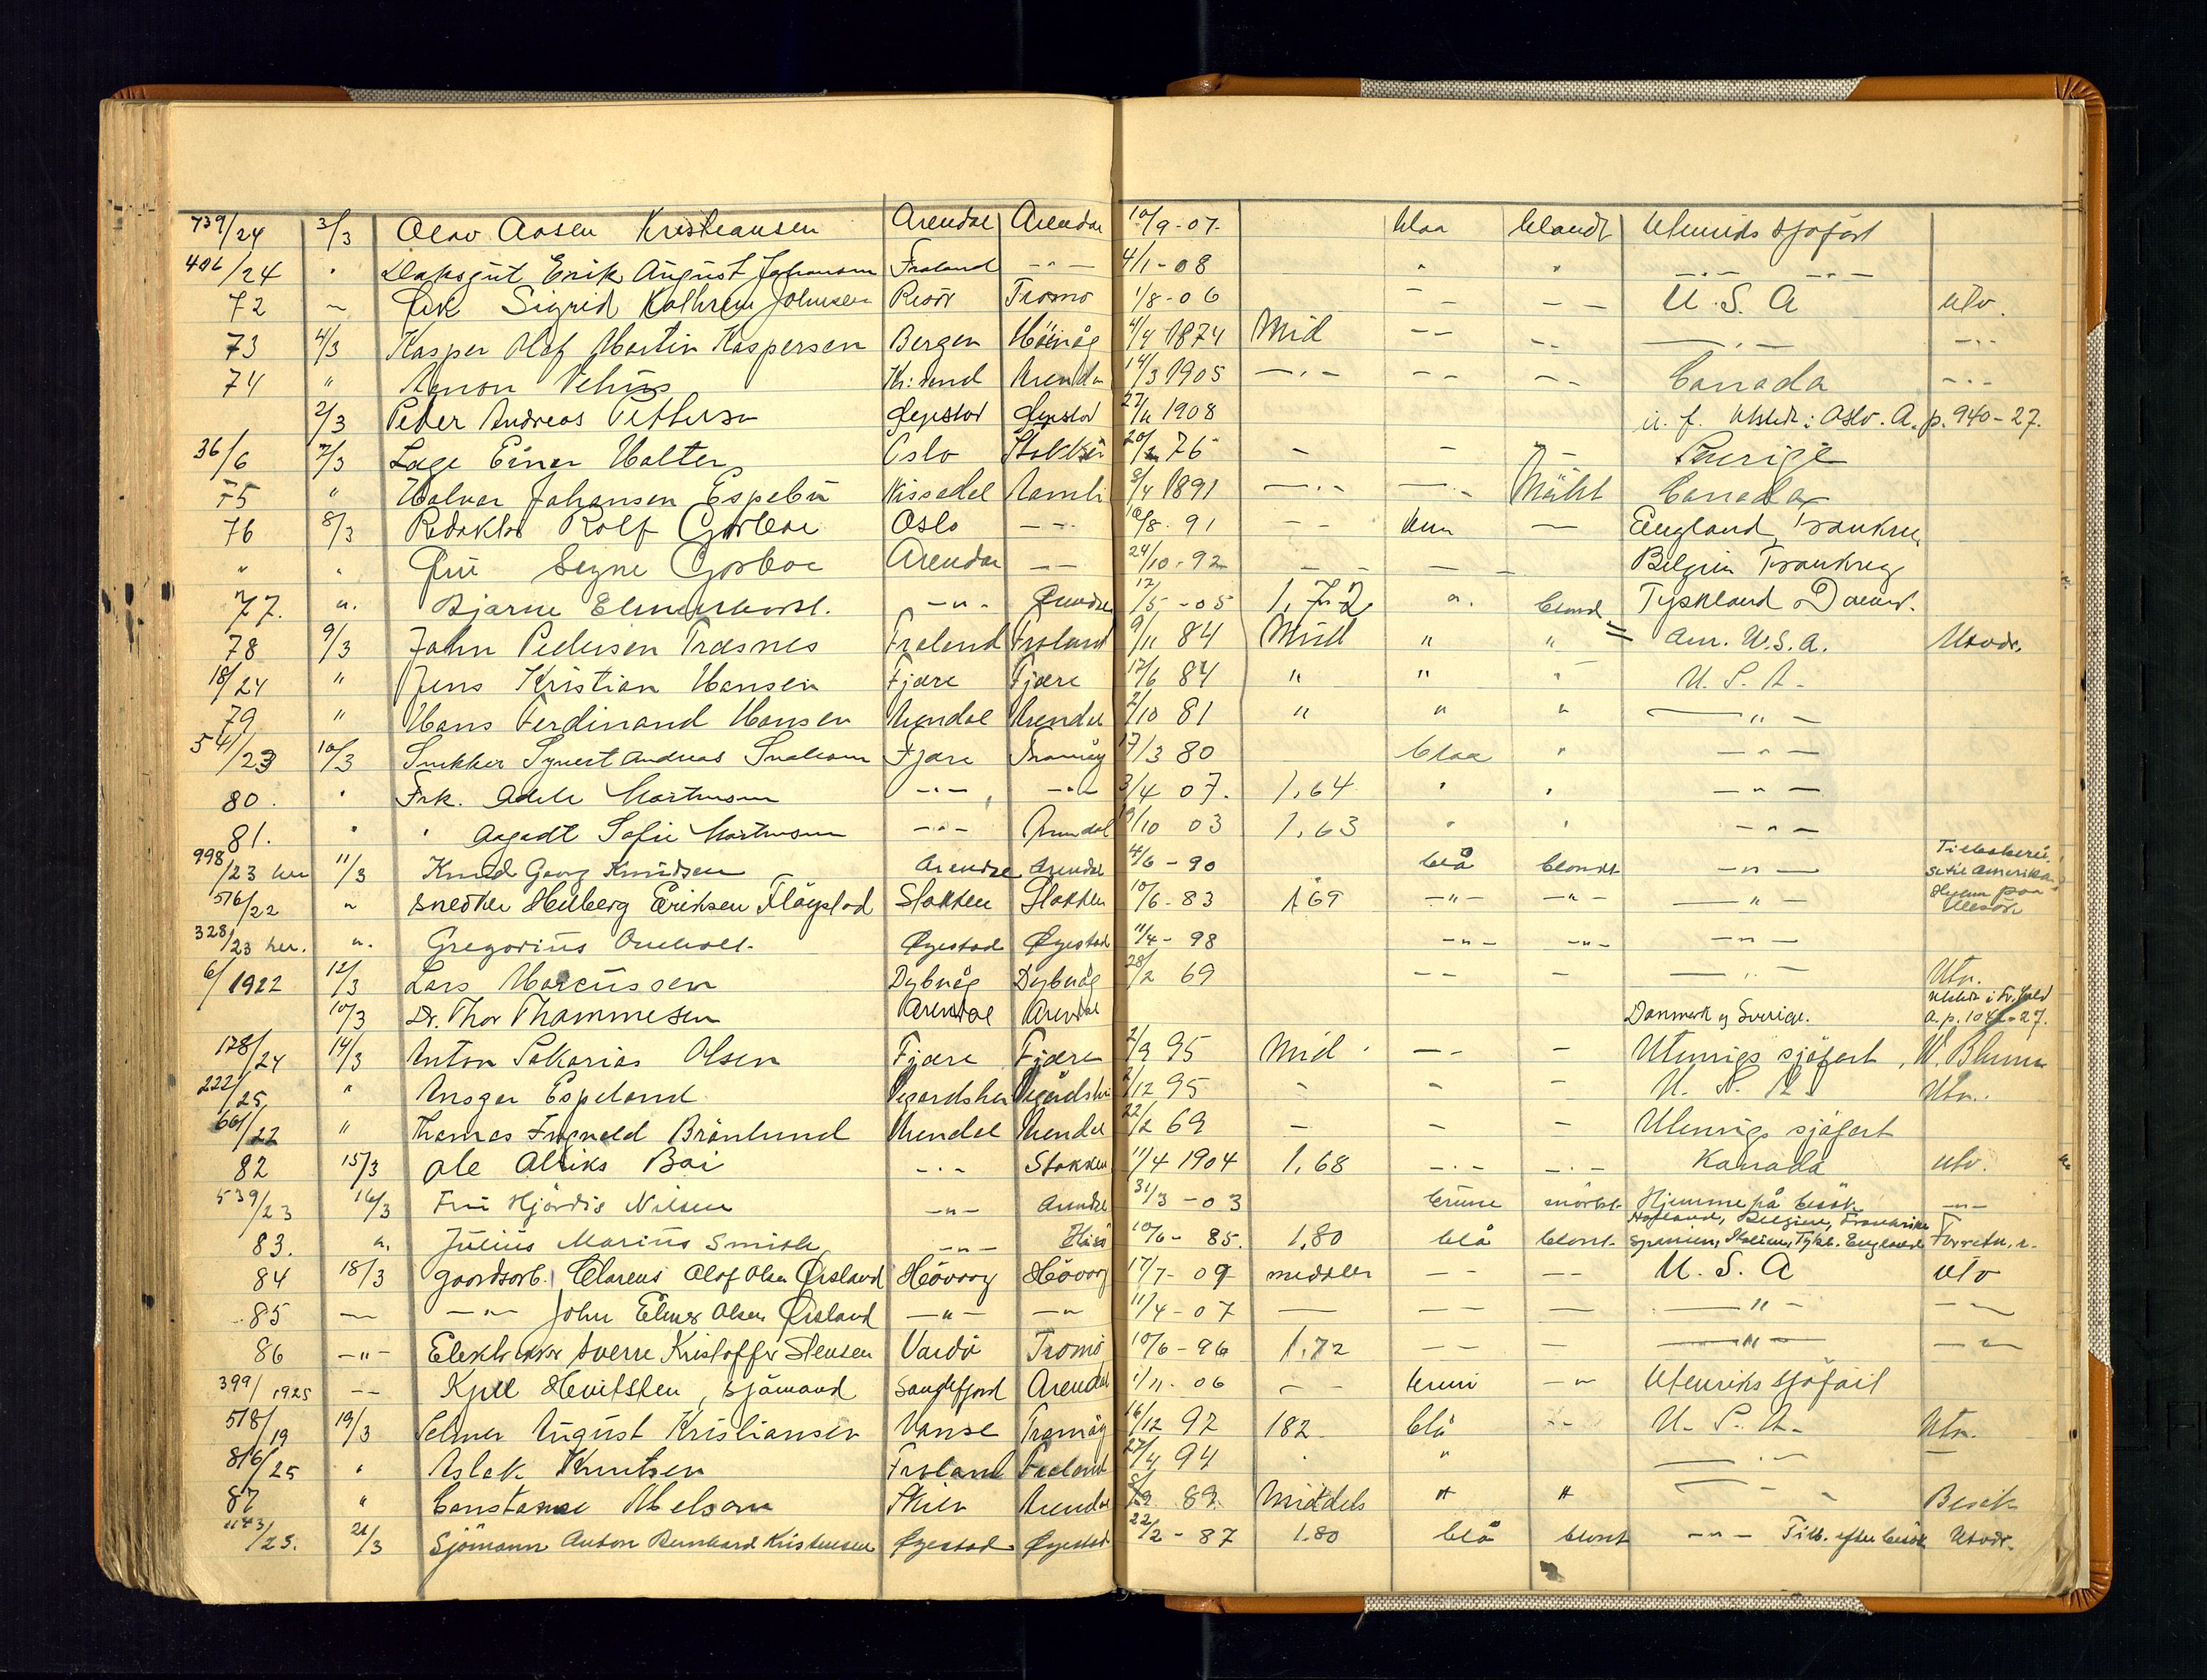 739/24 3/3 Olav Aasen Kristiansen Arendal Arendal 10/9-07. blaa blandt Utenriks sjøfart
406/24 " Erik August Johansen Froland -"- 4/1-08 " " -"- -"-
72 - Frk Sigrid Kathren Johnsen Risör Tromö 1/8-06 -- -- U.S.A utv.
73 4/3 Kasper Olaf Martin Kaspersen Bergen 4/4 1874 Mid -- -- -"- -"-
74 " Kr.sand Arendal 14/3 1905 -"- -- -- Canada -"-
2/3 Peter Andreas Pettersen Øyestad Øyestad 1908 Oslo. A. p. 940-27.
36/6 7/3 Lage Einar Holter Oslo 76 - - - Sverige
75 " Halvor Johansen Espebu Nissedal Aamli 3/4 1891 -"- -"- Canada
76 8/3 Redaktør Rolf Oslo -"- 91 -- brun - England, Frankri
" " Fru Signe Arendal -- 24/10-92 - - - Belgien Frankrig
77. ". Bjarne -"- Arendal 12/5-05 1,72 ". blond Tyskland Danm.
78 9/3 John Pedersen Træsnes Froland Froland 9/11 84 Mid " " Am. U.S.A. Utvdr.
18/24 " Jens Kristian Hansen Fjære Fjære 17/6 84 " " " U.S.A.
79 " Hans Ferdinand Hansen Arendal Arendal 2/10 81 " " " -"-
541/23 10/3 Snekker Andreas Fjære 17/3 80 blaa " -"-
80. " Frk. Adele Martinsen -"- -"- 3/4 07. 1,64 " " -"-
81. " " Aagodt Sofie Martinsen -"- Arendal 10/10 03 1,63 " " -"-
998/23 her 11/3 Knud Georg Knudsen Arendal Arendal 4/6-90 blå blondt -"- Amerika
576/22 " snedker Heiberg Eriksen Fløystad Stokken Stokken 10/6-83 1.69 -"- -"- -"-
328/23 her. ". Gregorius Øyestad Øyestad 11/4-98 -"- -"- -"-
6/1922 12/3 Lars Marcussen Dybvåg Dybvåg 28/2 69 -- - -"- Utv.
10/3 Dr. Thor Thommesen Arendal Arendal Danmark og Sverige. A.p. 1042-27.
178/24 14/3 Anton Sakarias Olsen Fjære Fjære 2/9 95 Mid -- - Utenrigs sjøfart
222/25 " Ansgar Espeland Vegardshei Vegårdshei 2/12 95 - - - U.S.A. Utv.
661/22 " Thomas Brønlund Arendal Arendal 22/2 69 - - - Utenrigs sjøfart
82 15/3 Ole Alriks Boi -"- Stokken 11/4 1904 1,68 -"- -"- Kanada utv.
539/23 16/3 Fru Hjørdis Nilsen -"- Arendal 31/3-03 brune mörkt Hjemme på besök -"-
83. ". Julius Marius Smith -"- Hisö 10/6-85. 1,80 blå blont. Holland, Belgien, Frankrike Spanien, Italien, Tyskl. England
84 18/3 gaardsarb. Clarens Olaf Olsen Örsland Hövåg Hövåg 17/7-09 middels -- -- U.S.A utv
85 - -"- John Elmer Olsen Örsland -"- -"- 11/4-07 - -- -- -"- -"-
86 -"- Elektriker Sverre Kristoffer Stensen Vardö Tromö 10/6-96 1.72 -- - -"- -"-
399/1925 -- Kjell sjömand Sandefjord Arendal 1/11-06 -- brun -"- Utenriks sjöfart
518/19 19/3 Selmer August Kristiansen Vanse Tromöy 16/12 92 182 blå -"- U.S.A. Utv.
816/25 " Aslak Knutsen Froland Froland 27/4 94 " -"- -
87 " Constanse Skien Arendal 89. Middels " " Besök
1143/25. 21/3 Sjömann Anton Bernhard Kristensen Øyestad Øyestad 22/2-87 1.80 blå blont -"- Tilb. efter besök Utvdr.